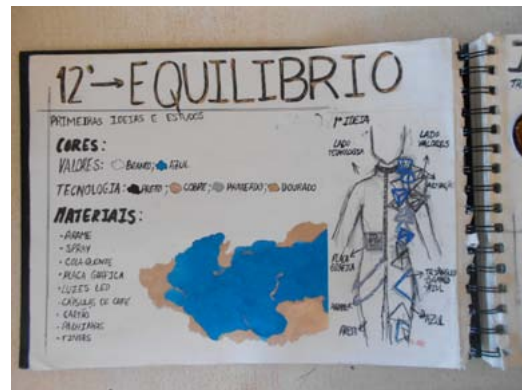 12º→EQUILIBRIO
PRIMEIRAS IDEIAS E ESTUDOS
CORES:
VALORES: BRANCO; AZUL
TECNOLOGIA: PRETO; COBRE; PRATEADO; DOURADO
MATERIAIS:
- ARAME
- SPRAY
- COLA QUENTE
- PLACA GRÁFICA
- LUZES LED
- CAPSULAS DE CAFÉ
- CARTÃO
- PARAFUSOS
- TINTAS
1ª IDEIA
LADO TECNOLOGIA
LADO VALORES
PLACA GRÁFICA
ARAME
PRETO
TRIÂNGULO
AZUL
AZUL